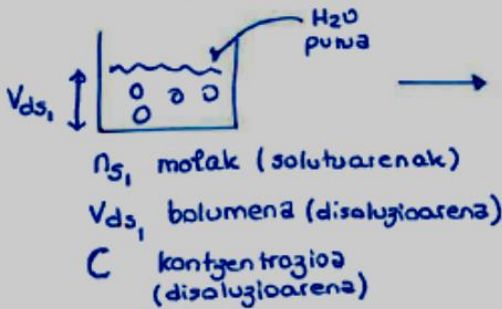 H₂O
purua
Vds₁
ns₁ molak (solutuarenak)
Vds₁ bolumena (disoluzioarena)
C kontzentrazioa
(disoluzioarena)